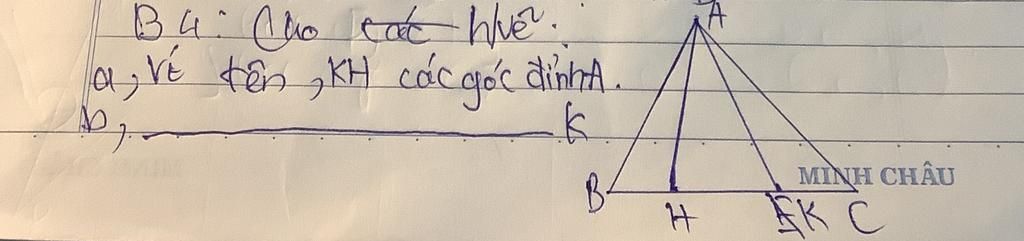 B4: Cho các h/vẽ.
a, Vt tên, KH các góc đỉnh A.
b, K
A
MINH CHÂU
B H K C